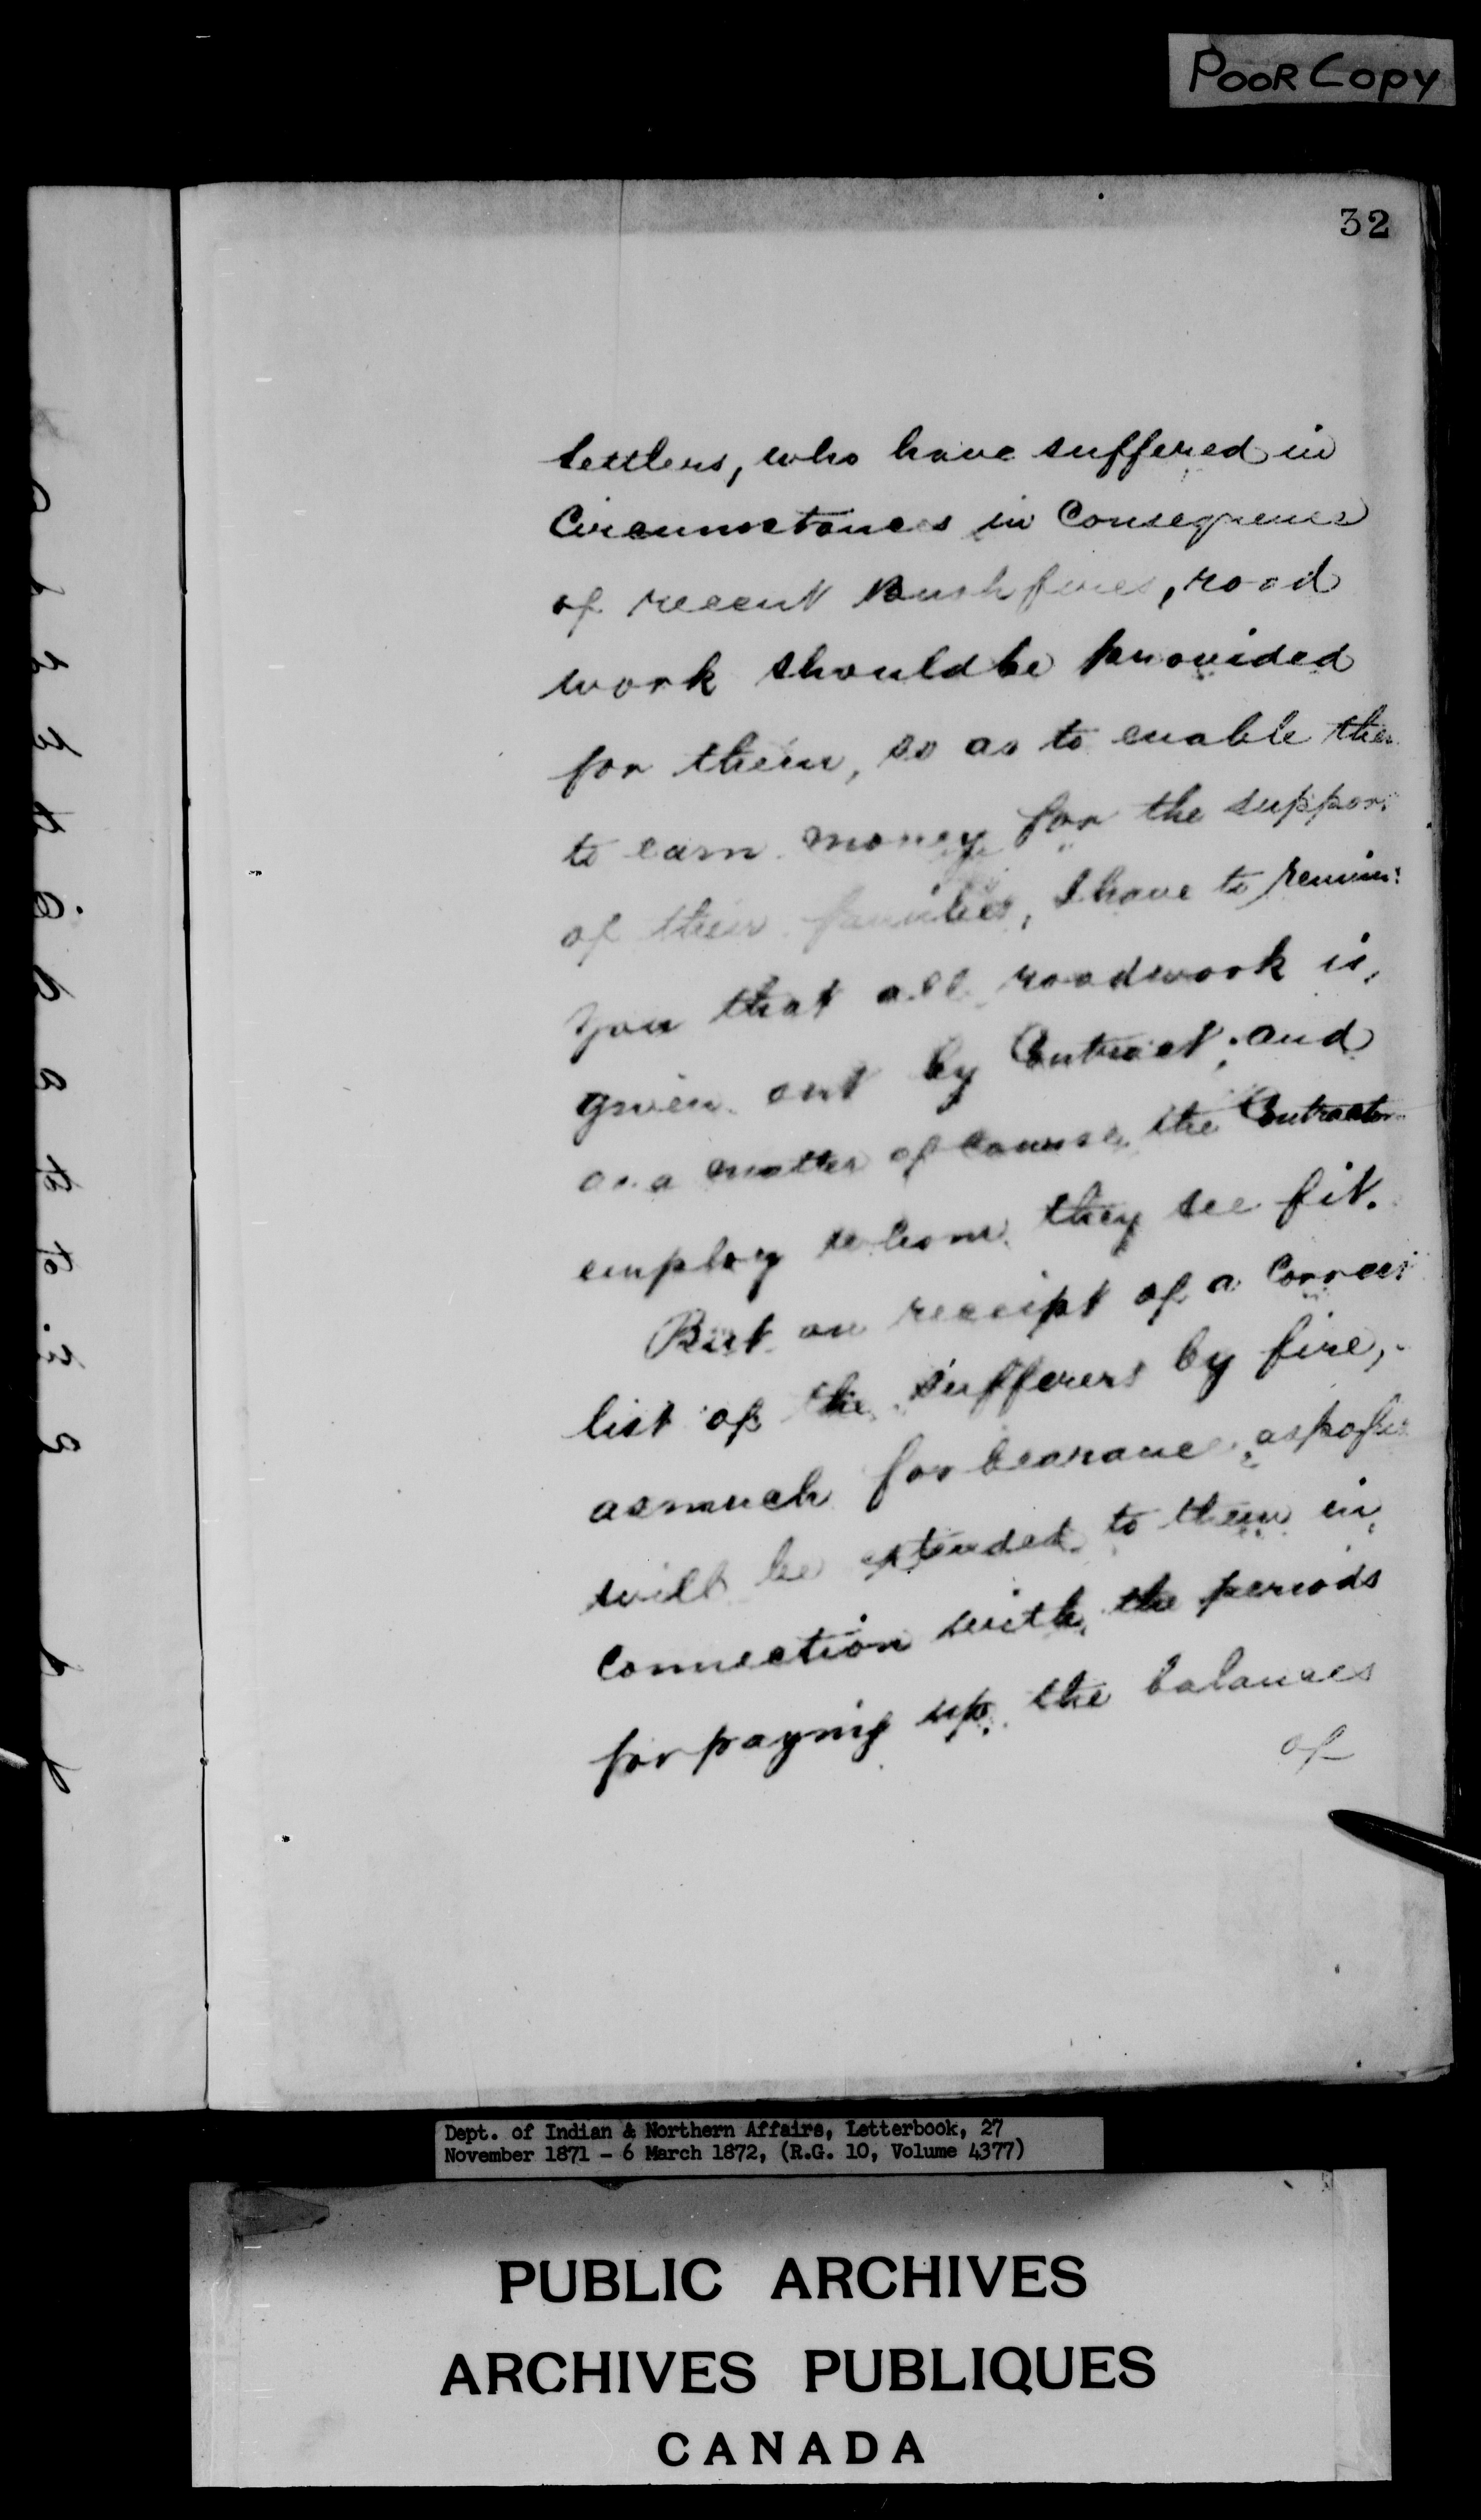 POOR COPY
32
Settlers, who have suffered in
Circumstances in Consequence
of recent Bush fires, road
work should be provided
for them, so as to enable them
to earn money for the support
of their families, I have to remind
you that all roadwork is,
given out by Contract; and
as a matter of Course, the Contractors
employ whom they see fit.
But on receipt of a Correct
list of the sufferers by fire,
as much forbearance as possible
will be extended to them in
Connection with the periods
for paying up the balances
of
Dept. of Indian & Northern Affairs, Letterbook, 27
November 1871 - 6 March 1872, (R.G. 10, Volume 4377)
PUBLIC ARCHIVES
ARCHIVES PUBLIQUES
CANADA